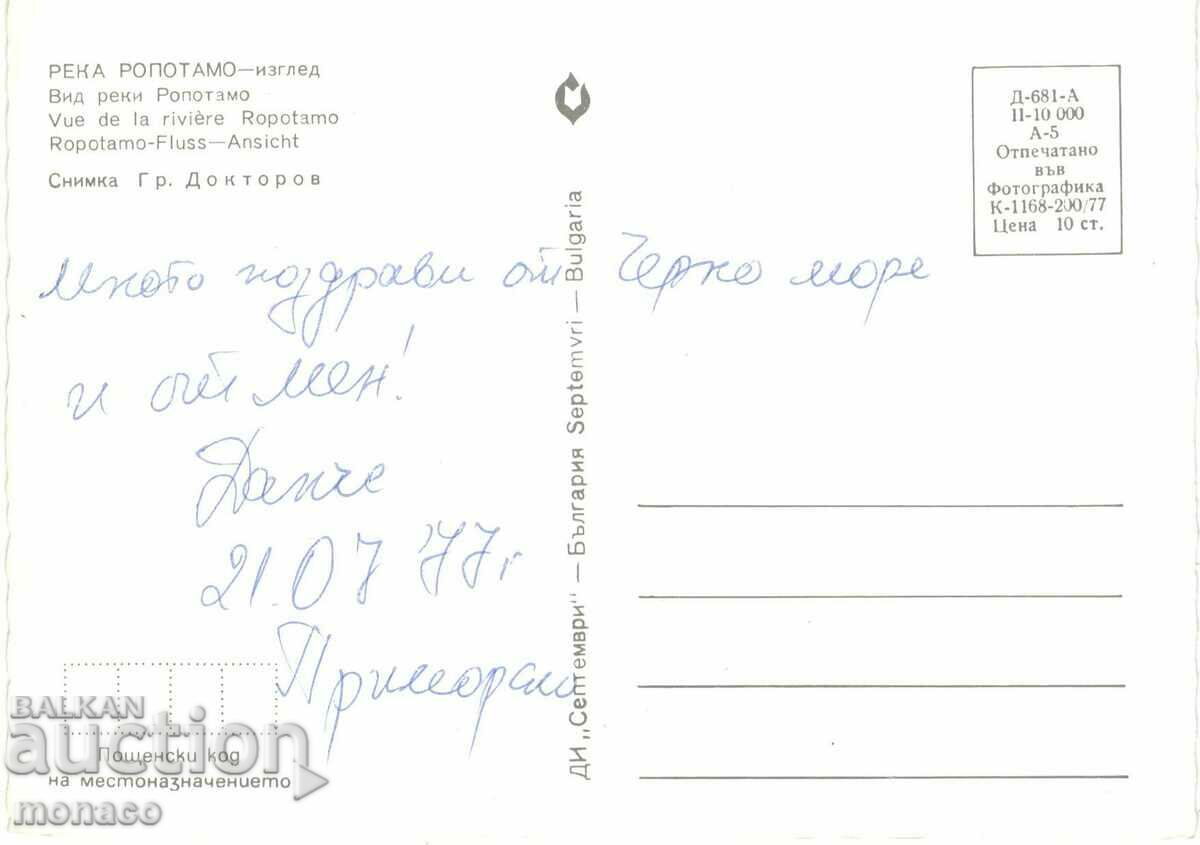 РЕКА РОПОТАМО—изглед
Вид реки Ропотамо
Vue de la rivière Ropotamo
Ropotamo-Fluss—Ansicht
Снимка Гр. Докторов
Д-681-А
II-10 000
А-5
Отпечатано
във
Фотографика
К-1168-200/77
Цена 10 ст.
Много поздрави от Черно море
и от мен!
Данче
21.07 '77 г
Приморско
ДИ „Септември" — България Septemvri — Bulgaria
Пощенски код
на местоназначението
BALKAN
auction
monaco